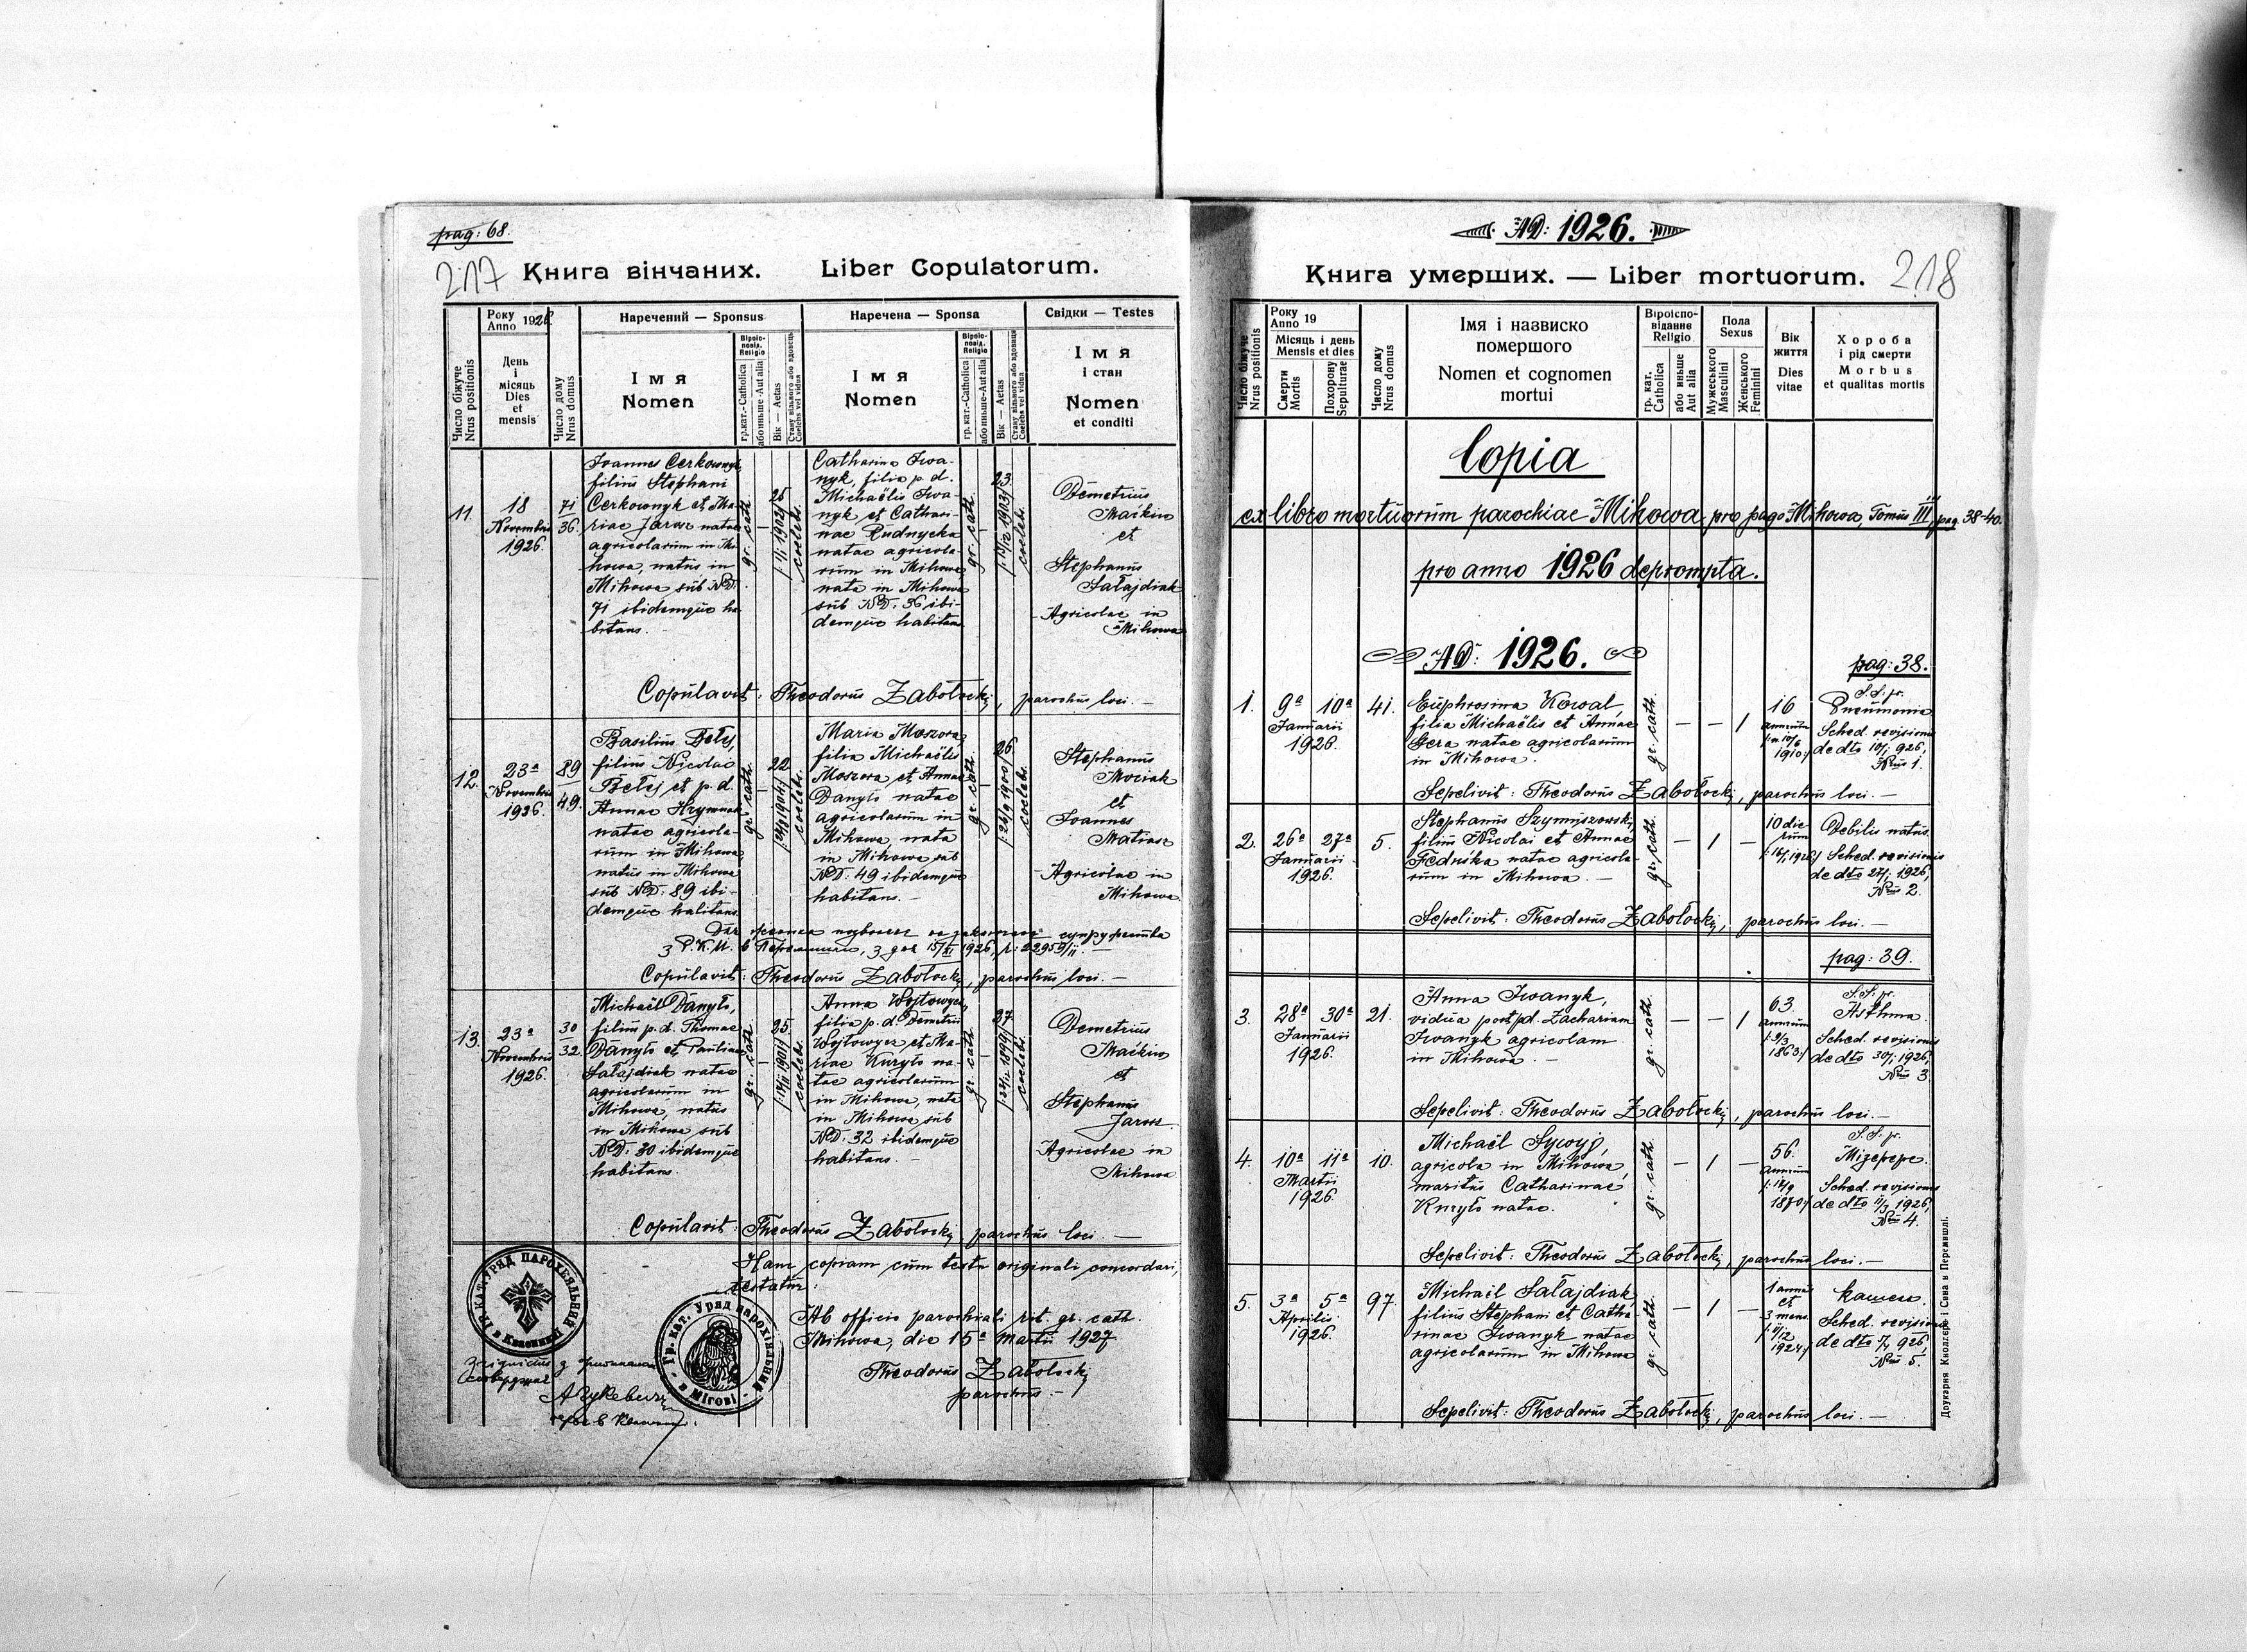 pag: 68.
217 Книга вінчаних. Liber Copulatorum.
Число біжуче Nrus positionis
Року Anno 1926
День і місяць Dies et mensis
Число дому Nrus domus
Наречений — Sponsus
Імя Nomen
Віроіс-повід. Religio
гр.кат.-Catholica
або иньше-Aut alia
Вік — Aetas
Стану вільного або вдовець Coelebs vel viduus
Наречена — Sponsa
Імя Nomen
Віроіс-повід. Religio
гр. кат.-Catholica
або иньше-Aut alia
Вік — Aetas
Стану вільного або вдовиця Coelebs vel vidua
Свідки — Testes
Імя і стан
Nomen et conditi
11.
18 Novembris 1926.
71 36.
Joannes Cerkownyk,
filius Stephani
Cerkownyk et Ma-
riae Jarosz natae
agricolarum in Mi-
howa, natus in
Mihowa sub ND.
71 ibidemque ha-
bitans. -
gr. cath.
—
25 /:1/1 1902:/
coelebs.
Catharina Iwa-
nyk, filia p. d.
Michaëlis Iwa-
nyk et Cathari-
nae Rudnycka
natae agricola-
rum in Mihowa
nata in Mihowa
sub ND: 36 ibi-
demque habitans
gr. cath.
—
23.
coelebs.
Demetrius
Maćkiw
et
Stephanus
Sałajdiak
Agricolae in
Mihowa
Copulavit: Theodorus Zabołockij, parochus loci. —
12.
23ª Novembris 1926.
89 49.
Basilius Bełej,
filius Nicolai
Bełej et p. d.
Annae Hrymnak
natae agricola-
rum in Mihowa
natus in Mihowa
sub ND: 89 ibi-
demque habitans.
gr. cath.
—
22.
coelebs.
Maria Moszora
filia Michaëlis
Moszora et Annae
Danyło natae
agricolarum in
Mihowa, nata
in Mihowa sub
ND: 49 ibidemque
habitans. -
gr. cath.
—
26. /:26/9 1900:/
coelebs.
Stephanus
et
Joannes
Agricolae in
Mihowa
супружества
1926,
Copulavit: Theodorus Zabołockij, parochus loci. —
13.
23ª Novembris 1926.
30 32.
Michaël Danyło,
filius p. d. Thomae
Danyło et Paulinae
Sałajdiak natae
agricolarum in
Mihowa, natus
in Mihowa sub
ND: 30 ibidemque
habitans.
gr. cath.
—
25.
coelebs.
Anna Wojtowycz,
filia p. d. Demetrii
Wojtowycz et Ma-
riae Kuryło na-
tae agricolarum
in Mihowa, nata
in Mihowa sub
ND: 32 ibidemque
habitans. -
gr. cath.
—
27.
coelebs.
Demetrius
Maćkiw
et
Stephanus
Jarosz.
Agricolae in
Mihowa
Copulavit: Theodorus Zabołockij, parochus loci —
Hanc copiam cum textu originali concordari,
testatur:
Ab officio parochiali rit. gr. cath.
Mihowa, die 15ª Martii 1927
Theodorus Zabołockij
parochus. -
Гр. кат. Уряд парохіяльний
в Міговi
ГР. КАТ. УРЯД ПАРОХІЯЛЬНИЙ
AD: 1926.
Книга умерших. — Liber mortuorum. 218
Число біжуче Nrus positionis
Року Anno 19
Місяць і день Mensis et dies
Смерти Mortis
Похорону Sepulturae
Число дому Nrus domus
Імя і назвиско
помершого
Nomen et cognomen
mortui
Віроіспо-відание Religio
гр. кат. Catholica
або иньше Aut alia
Пола Sexus
Мужеського Masculini
Женського Feminini
Вік життя Dies vitae
Хороба
і рід смерти
Morbus
et qualitas mortis
Copia
ex libro mortuorum parochiae Mihowa pro pago Mihowa, Tomus III, pag. 38-40.
pro anno 1926 deprompta.
AD: 1926.
pag: 38.
1.
9ª 10ª Januarii 1926.
41.
Euphrosina Kowal,
filia Michaëlis et Annae
Gera natae agricolarum
in Mihowa.
gr. cath.
— — 1
16 annorum 1910:/
S. S. pr.
Pneumonia
Sched. revisionis
de dto 10/1 926,
Nrus 1.
Sepelivit: Theodorus Zabołockij, parochus loci. —
2.
26ª 27ª Januarii 1926.
5.
Stephanus Szymyszowskij,
filius Nicolai et Annae
Feduśka natae agricola-
rum in Mihowa. —
gr. cath.
— 1 —
10 dierum
Debilis natus.
Sched. revisionis
de dto 27/1 1926,
Nrus 2.
Sepelivit: Theodorus Zabołockij, parochus loci. —
pag: 39.
3.
28ª 30ª Januarii 1926.
21.
Anna Iwanyk,
vidua post p.d. Zachariam
Iwanyk agricolam
in Mihowa. —
gr. cath.
— — 1
63. annorum 1863:/
S. S. pr.
Asthma.
Sched. revisionis
de dto 30/1 1926,
Nrus 3.
Sepelivit: Theodorus Zabołockij, parochus loci. —
4.
10ª 11ª Martii 1926.
10.
Michaël Sywyj,
agricola in Mihowa,
maritus Catharinae
Kuryło natae.
gr. cath.
— 1 —
56. annorum 1870:/
S. S. pr.
Sched. revisionis
de dto 11/3 1926,
Nrus 4.
Sepelivit: Theodorus Zabołockij, parochus loci. —
5.
3ª 5ª Aprilis 1926.
97.
Michaël Sałajdiak,
filius Stephani et Catha-
rinae Iwanyk natae
agricolarum in Mihowa
gr. cath.
— 1 —
1 anni et 3 mens. 1924:/
кашель.
Sched. revisionis
de dto 5/4 926,
Nrus 5.
Sepelivit: Theodorus Zabołockij, parochus loci. —
Друкарня Кноллєра і Сина в Перемишлі.